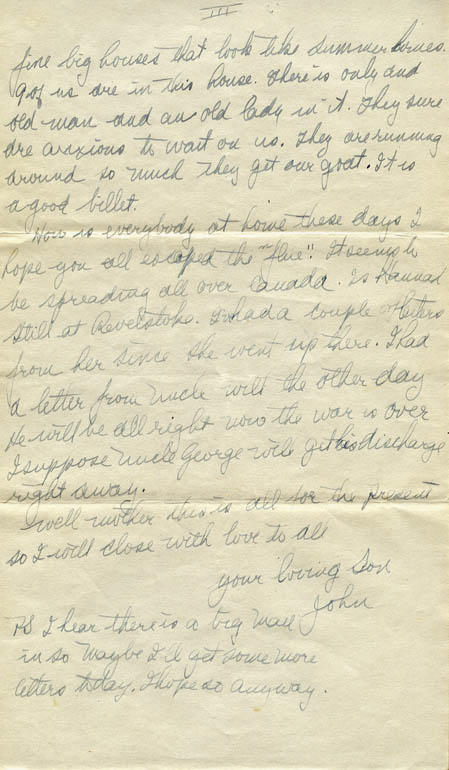 III
fine big houses that look like summer homes.
9 of us are in this house. There is only and
old man and an old lady in it. They sure
are anxious to wait on us. They are running
around so much they get our goat. It is
a good billet.
How is everybody at home these days I
hope you all escaped the "flue". It seems to
be spreading all over Canada. Is Hannah
still at Revelstoke. I had a couple of letters
from her since she went up there. I had
a letter from Uncle Will the other day
He will be all right now the war is over
I suppose Uncle George will get his discharge
right away.
Well mother this is all for the present
so I will close with love to all
your loving Son
John
PS I hear there is a big mail
in so maybe I'll get some more
letters today. I hope so anyway.